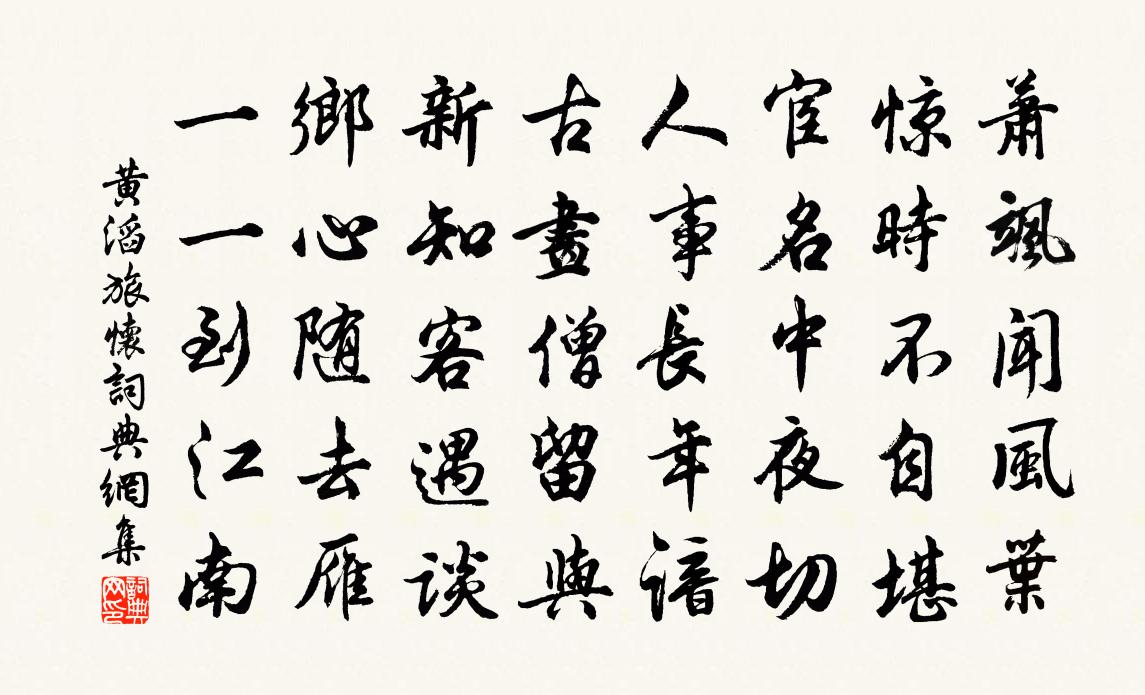 蕭颯聞風葉
惊時不自堪
宦名中夜切
人事長年諳
古畫僧留與
新知客遇談
鄉心随去雁
一一到江南
黃滔旅懷詞典網集
詞典网印